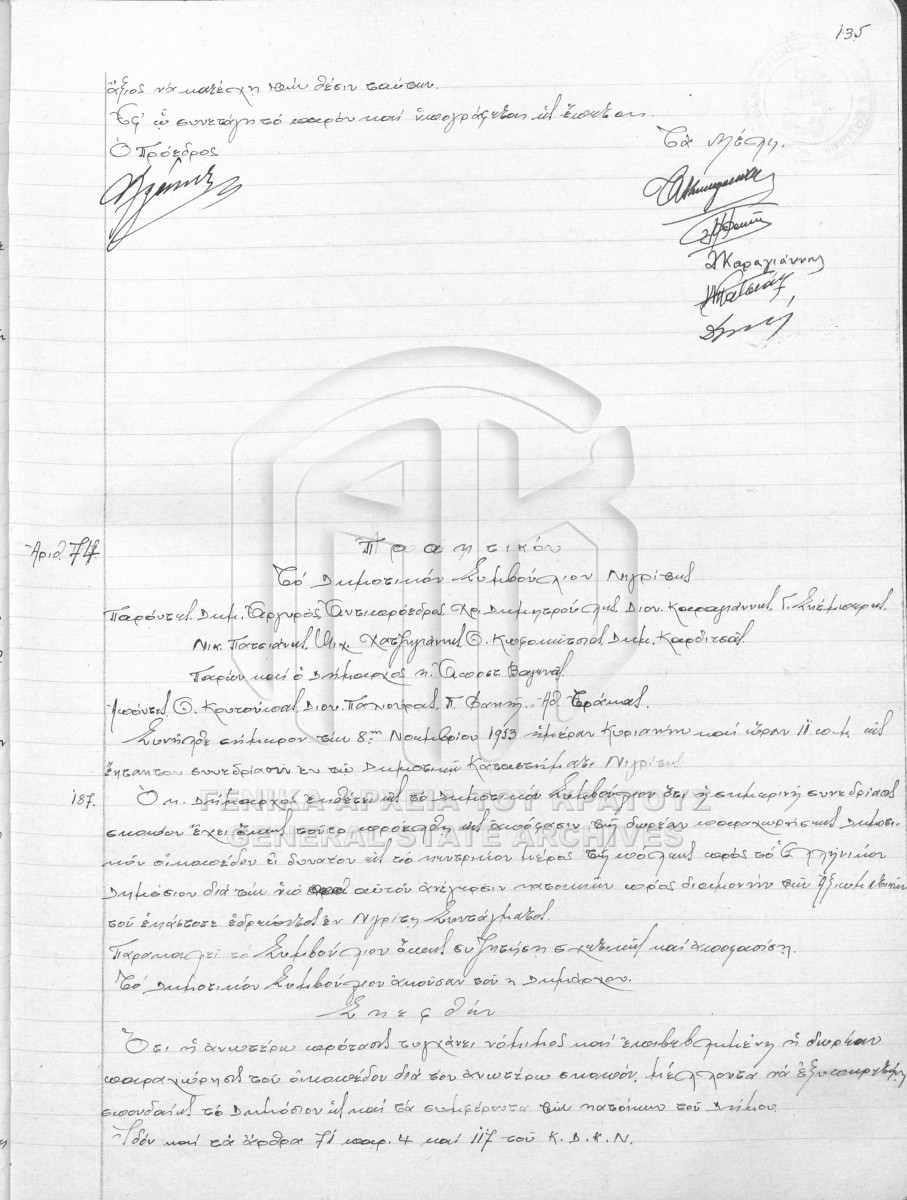 135
ἄξιος νά κατέχῃ τήν θέσιν ταύτην.
Ἐφ' ᾧ συνετάγη τό παρόν καί ὑπογράφεται ὡς ἕπεται.
Ὁ Πρόεδρος
Τά Μέλη.
Καραγιάννης
Ἀριθ. 74.
Πρακτικόν
Τό Δημοτικόν Συμβούλιον Νιγρίτης
Παρόντες Δημ. Ἀργυρός Ἀντιπρόεδρος Χρ. Δημητρούλης Διον. Καραγιάννης Γ.
Νικ. Πατσιάνης Μιχ. Χατζηγιάννης Θ. Δημ. Καρδιτσᾶς
Παρών καί ὁ Δήμαρχος κ. Βαγενᾶς
Ἀπόντες Θ. Κουτούπας Διον. Παλιούρας Π. Φακῆς Ἀθ.
Συνῆλθε σήμερον τήν 8ην Νοεμβρίου 1953 ἡμέραν Κυριακήν καί ὥραν 11 π.μ. εἰς
ἔκτακτον συνεδρίασιν ἐν τῷ Δημοτικῷ Καταστήματι Νιγρίτης
187. Ὁ κ. Δήμαρχος ἐκθέτει εἰς τό Δημοτικόν Συμβούλιον ὅτι ἡ σημερινή συνεδρίασις
σκοπόν ἔχει ὅπως τοῦτο προέλθῃ εἰς ἀπόφασιν τῆς δωρεάν παραχωρήσεως Δημοτι-
κοῦ οἰκοπέδου εἰ δυνατόν εἰς τό κεντρικόν μέρος τῆς πόλεως πρός τό Ἑλληνικόν
Δημόσιον διά τήν ὑπό αὐτοῦ ἀνέγερσιν κατοικιῶν πρός διαμονήν τῶν Ἀξιωματικῶν
τοῦ ἑκάστοτε ἑδρεύοντος ἐν Νιγρίτῃ Συντάγματος.
Παρακαλεῖ τό Συμβούλιον ὅπως συζητήσῃ σχετικῶς καί ἀποφασίσῃ.
Τό Δημοτικόν Συμβούλιον ἀκοῦσαν τοῦ κ Δημάρχου.
Σκεφθέν
Ὅτι ἡ ἀνωτέρω πρότασις τυγχάνει νόμιμος καί ἐπιβεβλημένη ἡ δωρεάν
παραχώρησις τοῦ οἰκοπέδου διά τόν ἀνωτέρω σκοπόν, μέλλοντα νά ἐξυπηρετήσῃ
σπουδαίως τό Δημόσιον ὡς καί τά συμφέροντα τῶν κατοίκων τοῦ Δήμου.
Ἰδόν καί τά ἄρθρα 71 παρ. 4 καί 117 τοῦ Κ.Δ.Κ.Ν.
ΓΕΝΙΚΑ ΑΡΧΕΙΑ ΤΟΥ ΚΡΑΤΟΥΣ
GENERAL STATE ARCHIVES